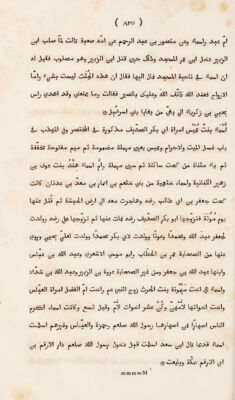 ( ٨٢٥ )
ام عبد واسمه وعن منصور بن عبد الرحيم عن امه صفية قالت لما صلب ابن
الزبير دخل ابن عمر المسجد وذلك حين قتل ابن الزبير وهو مصلوب فقيل له
ان اسماء فى ناحية المسجد فمال اليها فقال ان هذه الجثث ليست بشىء وانما
الارواح عند الله فاتقى الله وعليك بالصبر فقالت وما يمنعنى وقد اهدى راس
يحيى بن زكريا الى بغى من بغايا بنى اسرائيل
اسماء بنت عميس امراة ابى بكر الصديق مذكورة فى المختصر وفى المهذب فى
باب غسل الميت والاحرام وعميس بعين مهملة مضمومة ثم ميم مفتوحة مخففة
ثم ياء مثناة من تحت ساكنة ثم سين مهملة وام اسماء هند بنت عوف بن
زهير الكنانية واسماء خثعمية من بنى خثعم بن انمار بن معد بن عدنان كانت
تحت جعفر بن ابى طالب رضه وهاجرت معه الى ارض الحبشة ثم قتل عنها
يوم مؤتة فتزوجها ابو بكر الصديق رضه فمات عنها ثم تزوجها على رضه ولدت
لجعفر عبد الله ومحمدا وعونا وولدت لابى بكر محمدا وولدت لعلى يحيى روى
عنها من الصحابة عمر بن الخطاب وابو موسى الاشعرى وعبد الله بن عباس
وابنها عبد الله بن جعفر ومن غير الصحابة عروة بن الزبير وعبد الله بن شداد
واسماء هى اخت ميمونة بنت الحرث زوج النبى صلعم واخت ام الفضل امراة العباس
واخت اخواتها لامهن وكن عشر اخوات لام وقيل تسع وكانت اسماء اكرم
الناس اصهارا فمن اصهارها رسول الله صلعم وحمزة والعباس وغيرهم اسلمت
اسماء قديما قال ابن سعد اسلمت قبل دخول رسول الله صلعم دار الارقم بن
ابى الارقم بمكة وبايعت